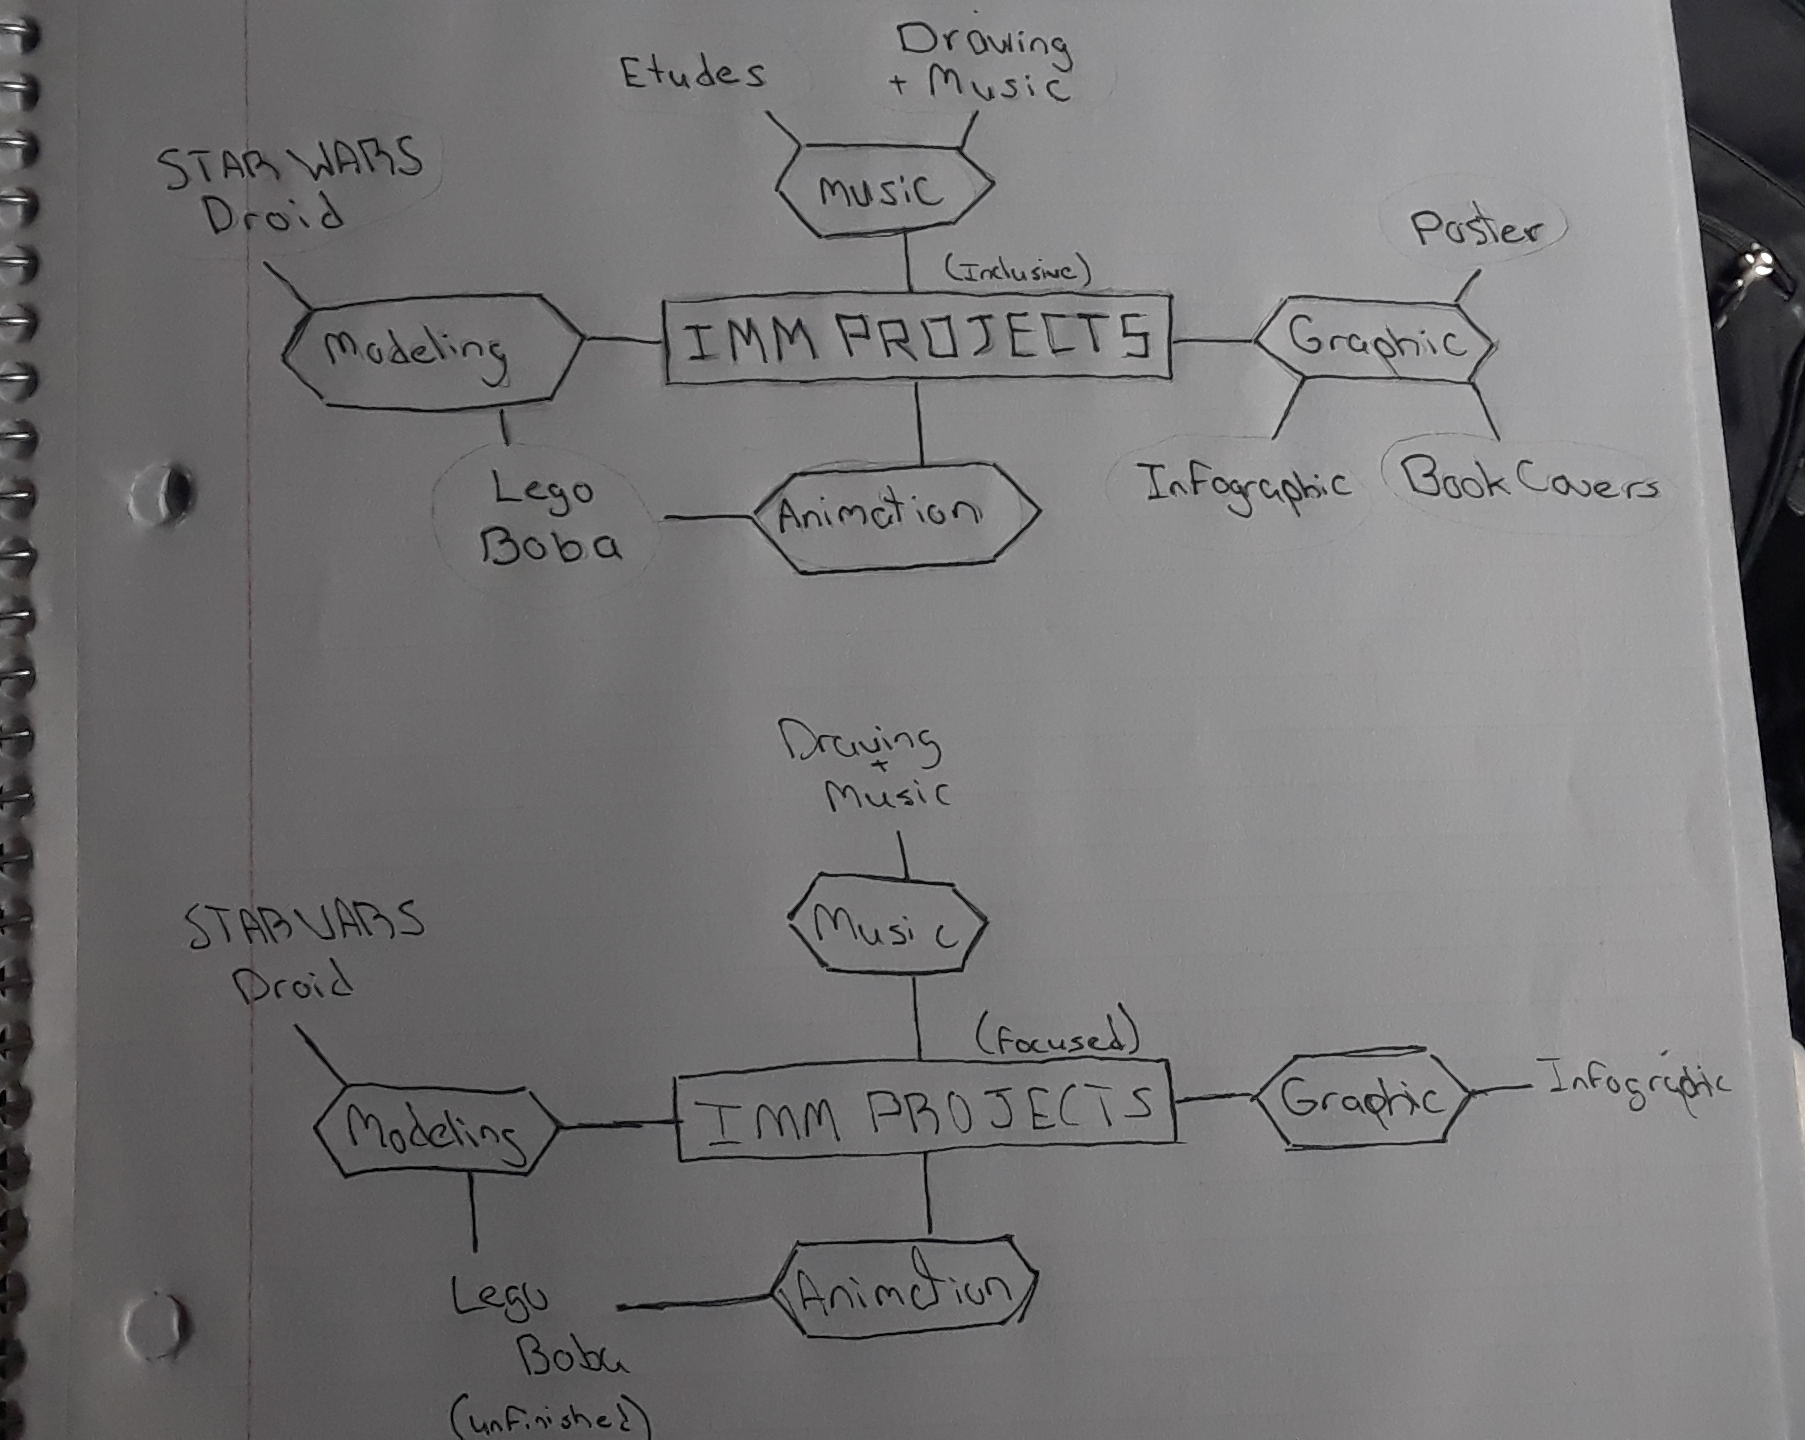 Drawing
Etudes
+ Music
STAR WARS
Droid
Music
Poster
(Inclusive)
Modeling
IMM PROJECTS
Graphic
Lego
Boba
Animation
Infographic
Book Covers
Drawing
+
Music
STAR WARS
Droid
Music
(Focused)
Modeling
IMM PROJECTS
Graphic
Infographic
Lego
Boba
(unfinished)
Animation